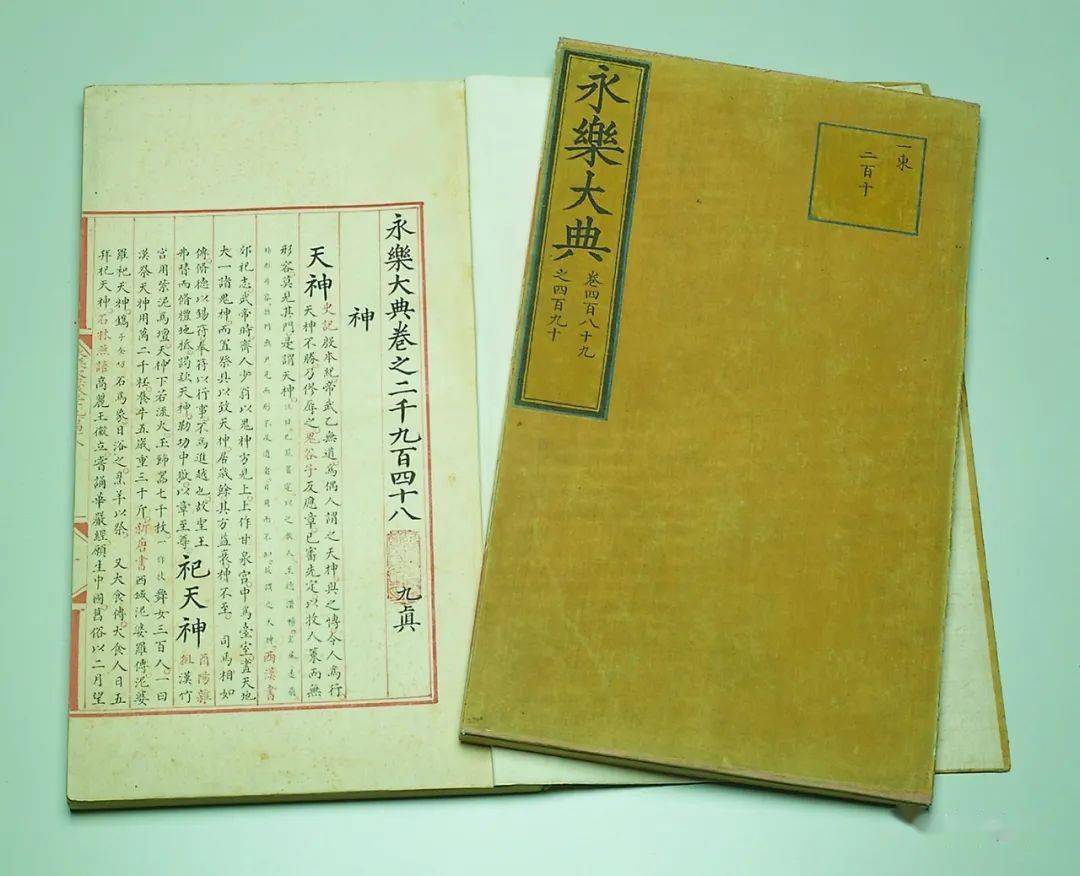 永樂大典
卷四百八十九
之四百九十
一東
二百十
永樂大典卷之二千九百四十八 九真
神
天神 史記殷本紀帝武乙無道爲偶人謂之天神與之博令人爲行
天神不勝乃僇辱之鬼谷子反應章已審先定以牧人策而無
形容莫見其門是謂天神
西漢書
郊祀志武帝時齊人少翁以鬼神方見上上作甘泉宮中爲臺室畫天地
大一諸鬼神而置祭具以致天神居歲餘其方益衰神不至 司馬相如
傳脩德以錫符奉符以行事不爲進越也故聖王
弗替而脩禮地祇謁欵天神勒功中嶽以章至尊
祀天神
酉陽雜
俎漢竹
宮用紫泥爲壇天神下若流火玉飾器七千枚一作枝舞女三百人一曰
漢祭天神用萬二千杯養牛五歲重三千斤新唐書西域泥婆羅傳泥婆
羅祀天神鐫石爲象日浴之烹羊以祭 又大食傳大食人日五
拜祀天神石林燕語高麗王徽立嘗誦華嚴經願生中國舊俗以二月望